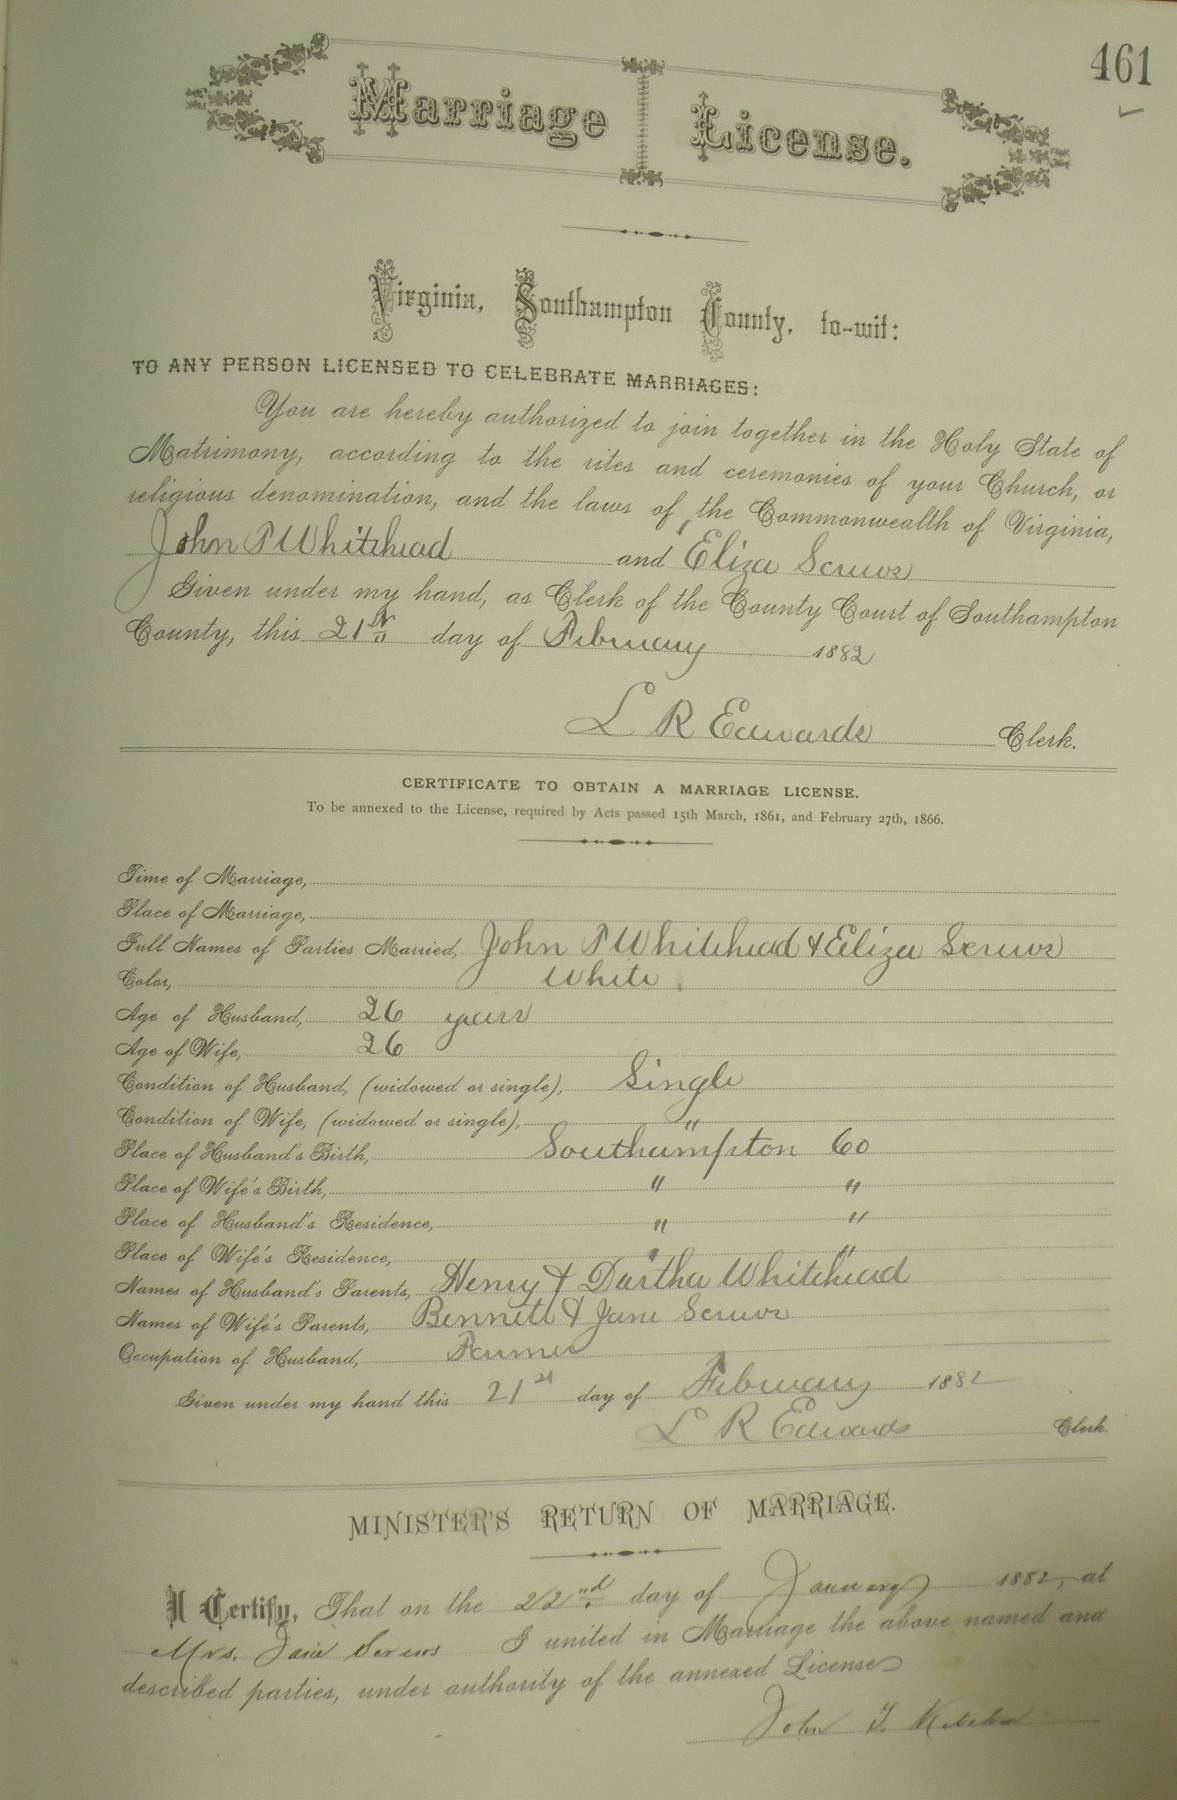 461
Marriage License.
Virginia, Southampton County, to-wit:
TO ANY PERSON LICENSED TO CELEBRATE MARRIAGES:
You are hereby authorized to join together in the Holy State of
Matrimony, according to the rites and ceremonies of your Church, or
religious denomination, and the laws of the Commonwealth of Virginia,
John P Whitehead and Eliza Screws
Given under my hand, as Clerk of the County Court of Southampton
County, this 21st day of February 1882
L R Edwards Clerk.
CERTIFICATE TO OBTAIN A MARRIAGE LICENSE.
To be annexed to the License, required by Acts passed 15th March, 1861, and February 27th, 1866.
Time of Marriage,
Place of Marriage,
Full Names of Parties Married, John P Whitehead & Eliza Screws
Color, White
Age of Husband, 26 years
Age of Wife, 26
Condition of Husband, (widowed or single), Single
Condition of Wife, (widowed or single), "
Place of Husband's Birth, Southampton Co
Place of Wife's Birth, " "
Place of Husband's Residence, " "
Place of Wife's Residence, " "
Names of Husband's Parents, Henry & Whitehead
Names of Wife's Parents, Bennett & Jane Screws
Occupation of Husband, Farmer
Given under my hand this 21st day of February 1882
L R Edwards Clerk.
MINISTER'S RETURN OF MARRIAGE.
I Certify, That on the 22nd day of January 1882, at
Mrs. Jane Screws I united in Marriage the above named and
described parties, under authority of the annexed License
John T.